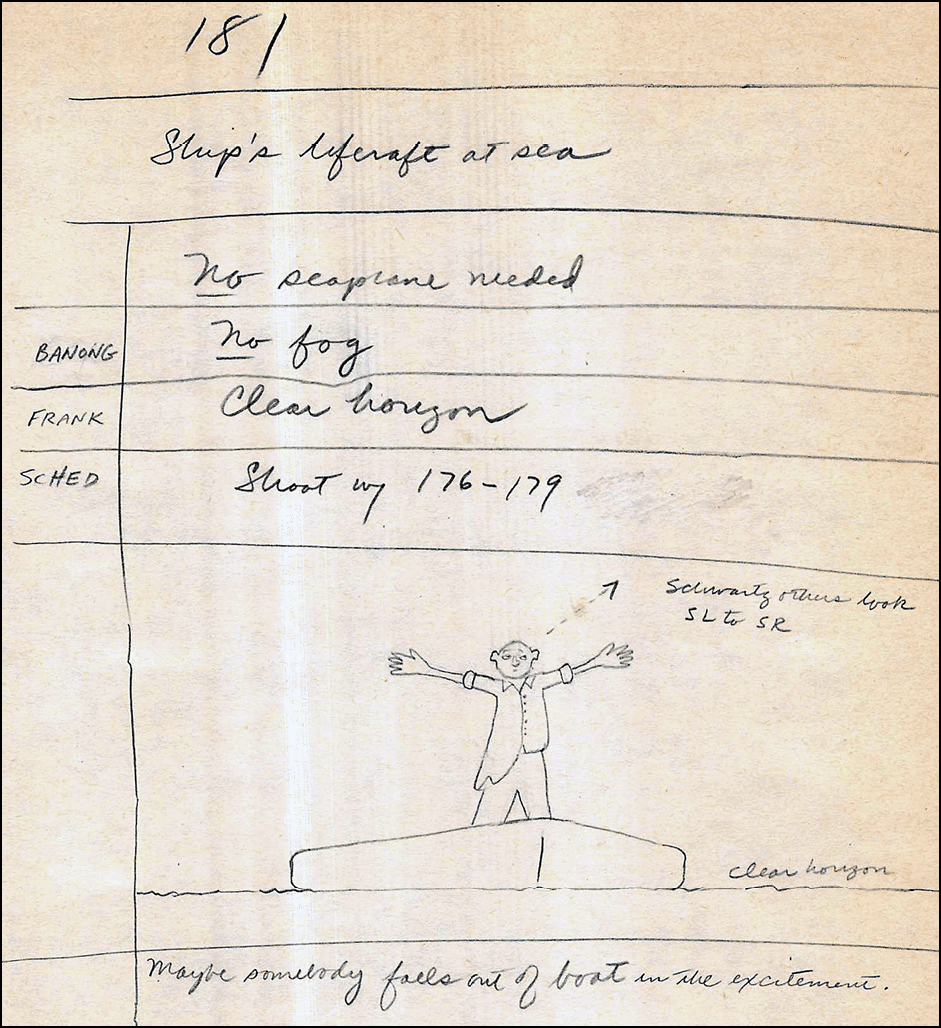 181
Ship's liferaft at sea
No seaplane needed
BANONG No fog
FRANK Clear horizon
SCHED Shoot w/ 176-179
Schwartz others look
SL to SR
clear horizon
Maybe somebody falls out of boat in the excitement.